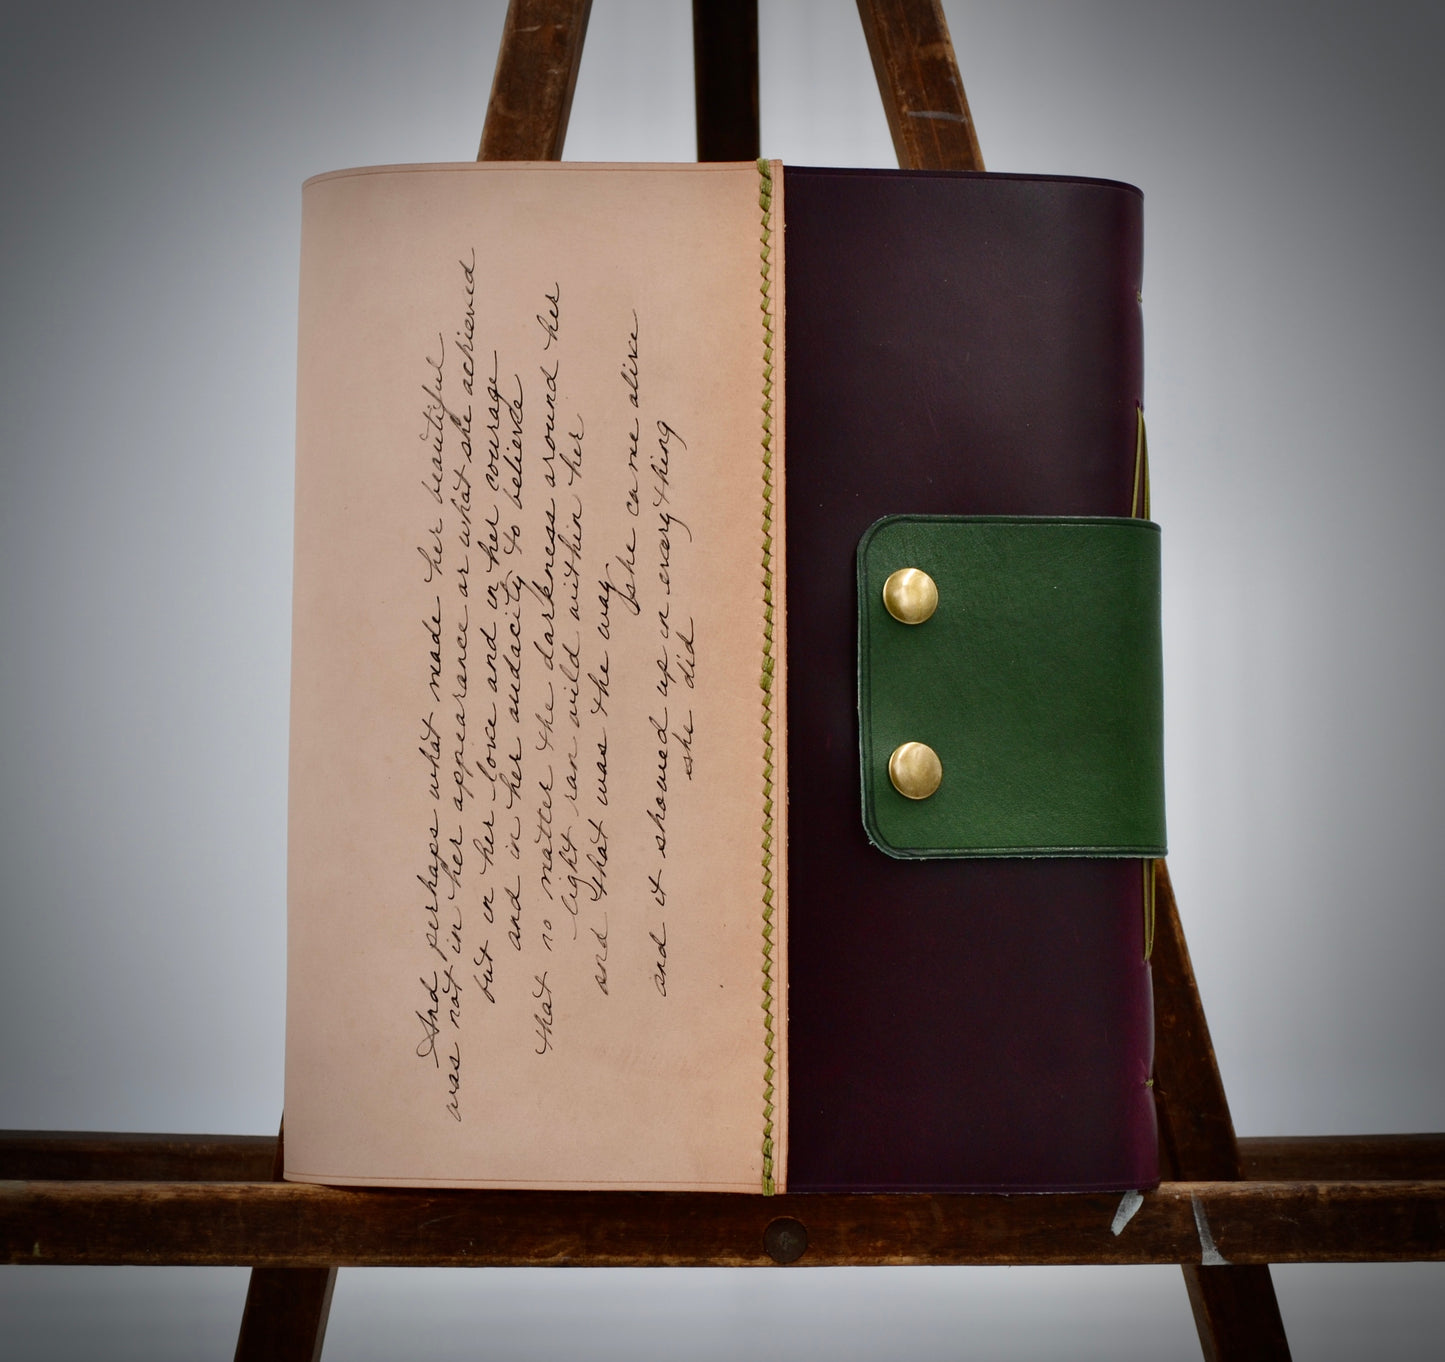 And perhaps what made her beautiful
was not in her appearance or what she achieved
but in her love and in her courage
and in her audacity to believe
that no matter the darkness around her
light ran wild within her
and that was the way
she came alive
and it showed up in everything
she did